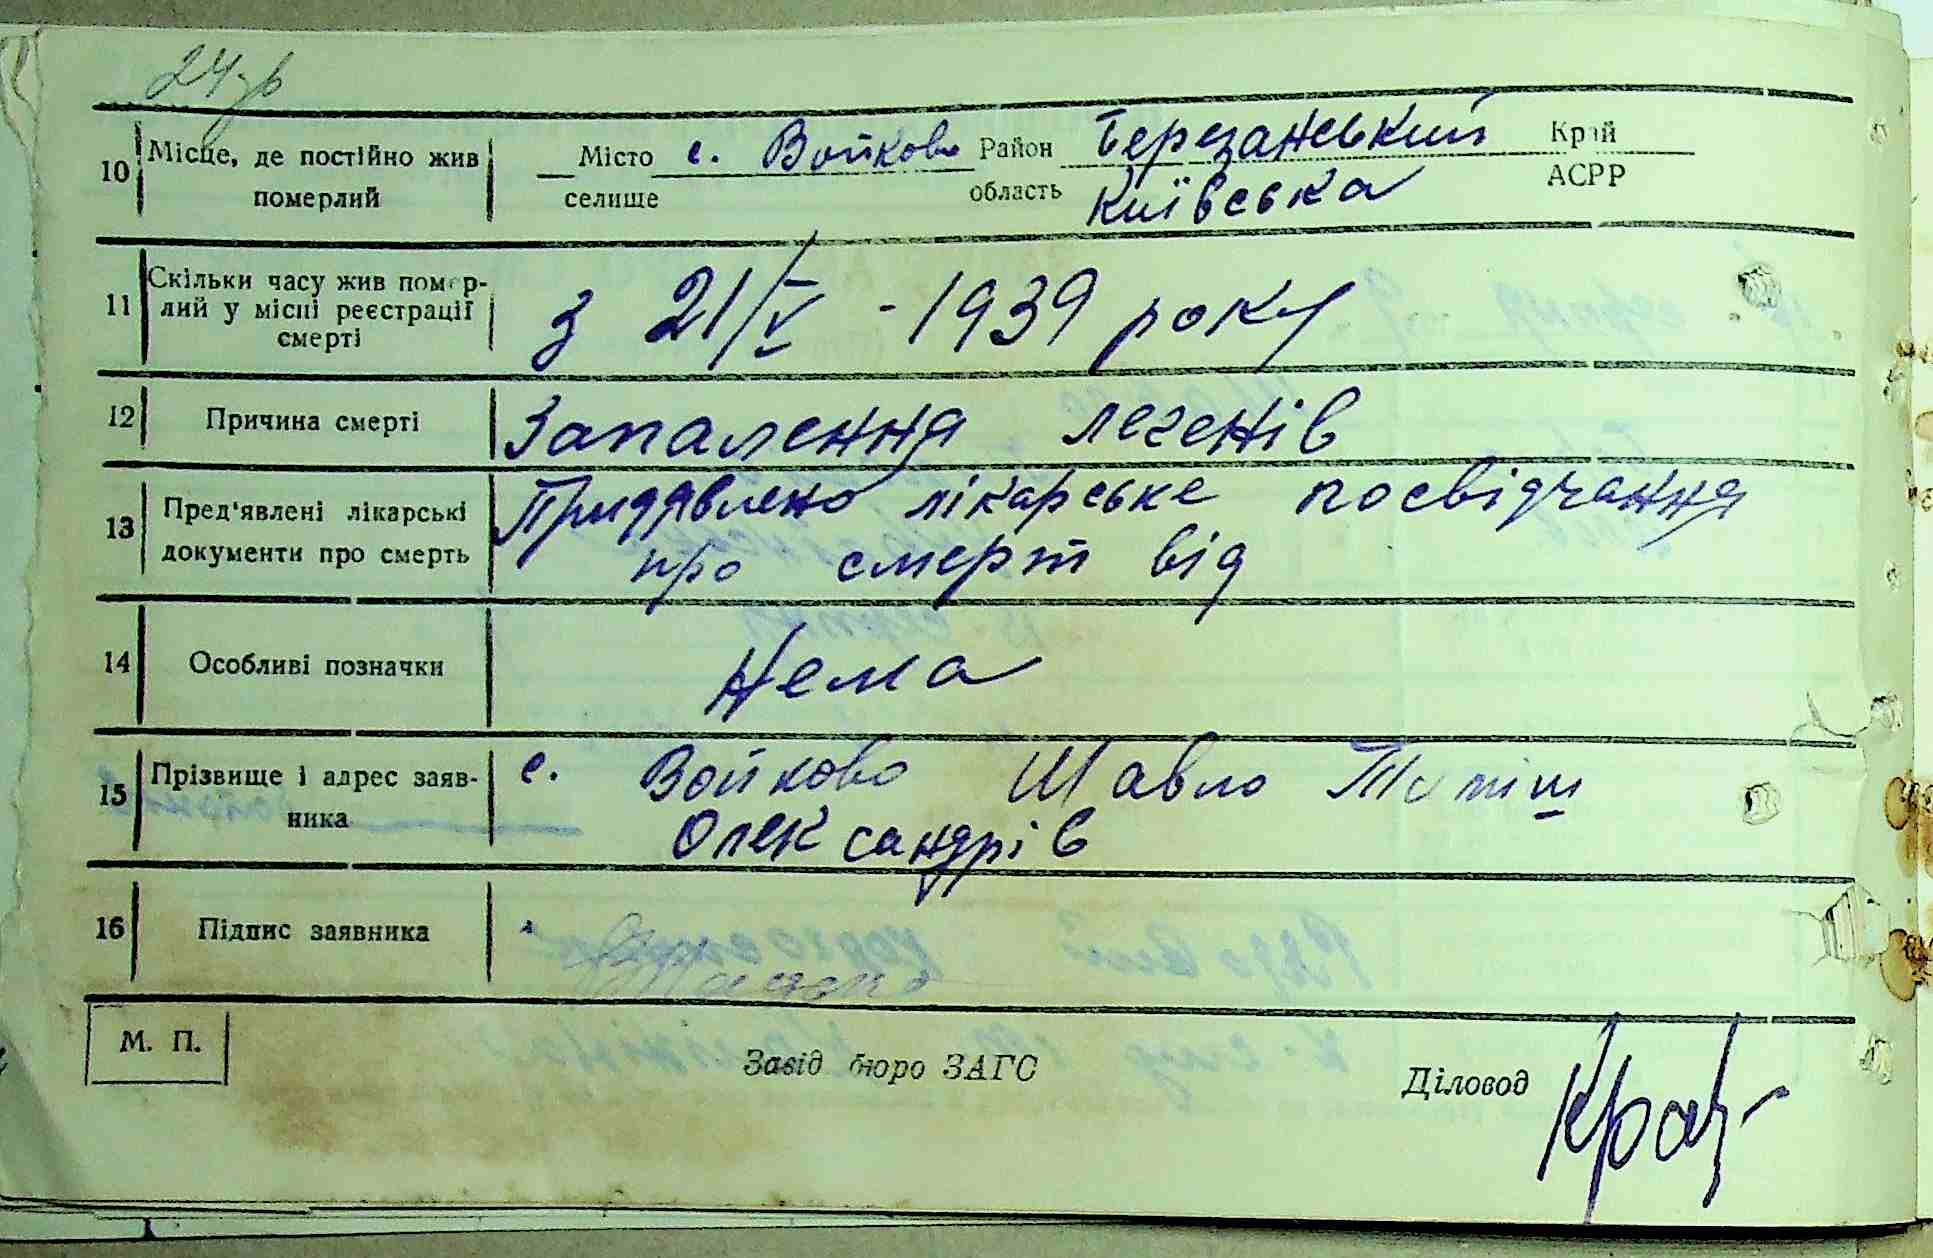 24зв
10 Місце, де постійно жив померлий
Місто с. Войково Район Березанський Край
селище область Київська АСРР
11 Скільки часу жив померлий у місці реєстрації смерті
з 21/V - 1939 року
12 Причина смерті Запалення легенів
13 Пред'явлені лікарські документи про смерть
Придявлено лікарське посвідчання
про смерт від
14 Особливі позначки Нема
15 Прізвище і адрес заявника
с. Войково Шавло
Олександрів
16 Підпис заявника
М. П.
Завід бюро ЗАГС
Діловод